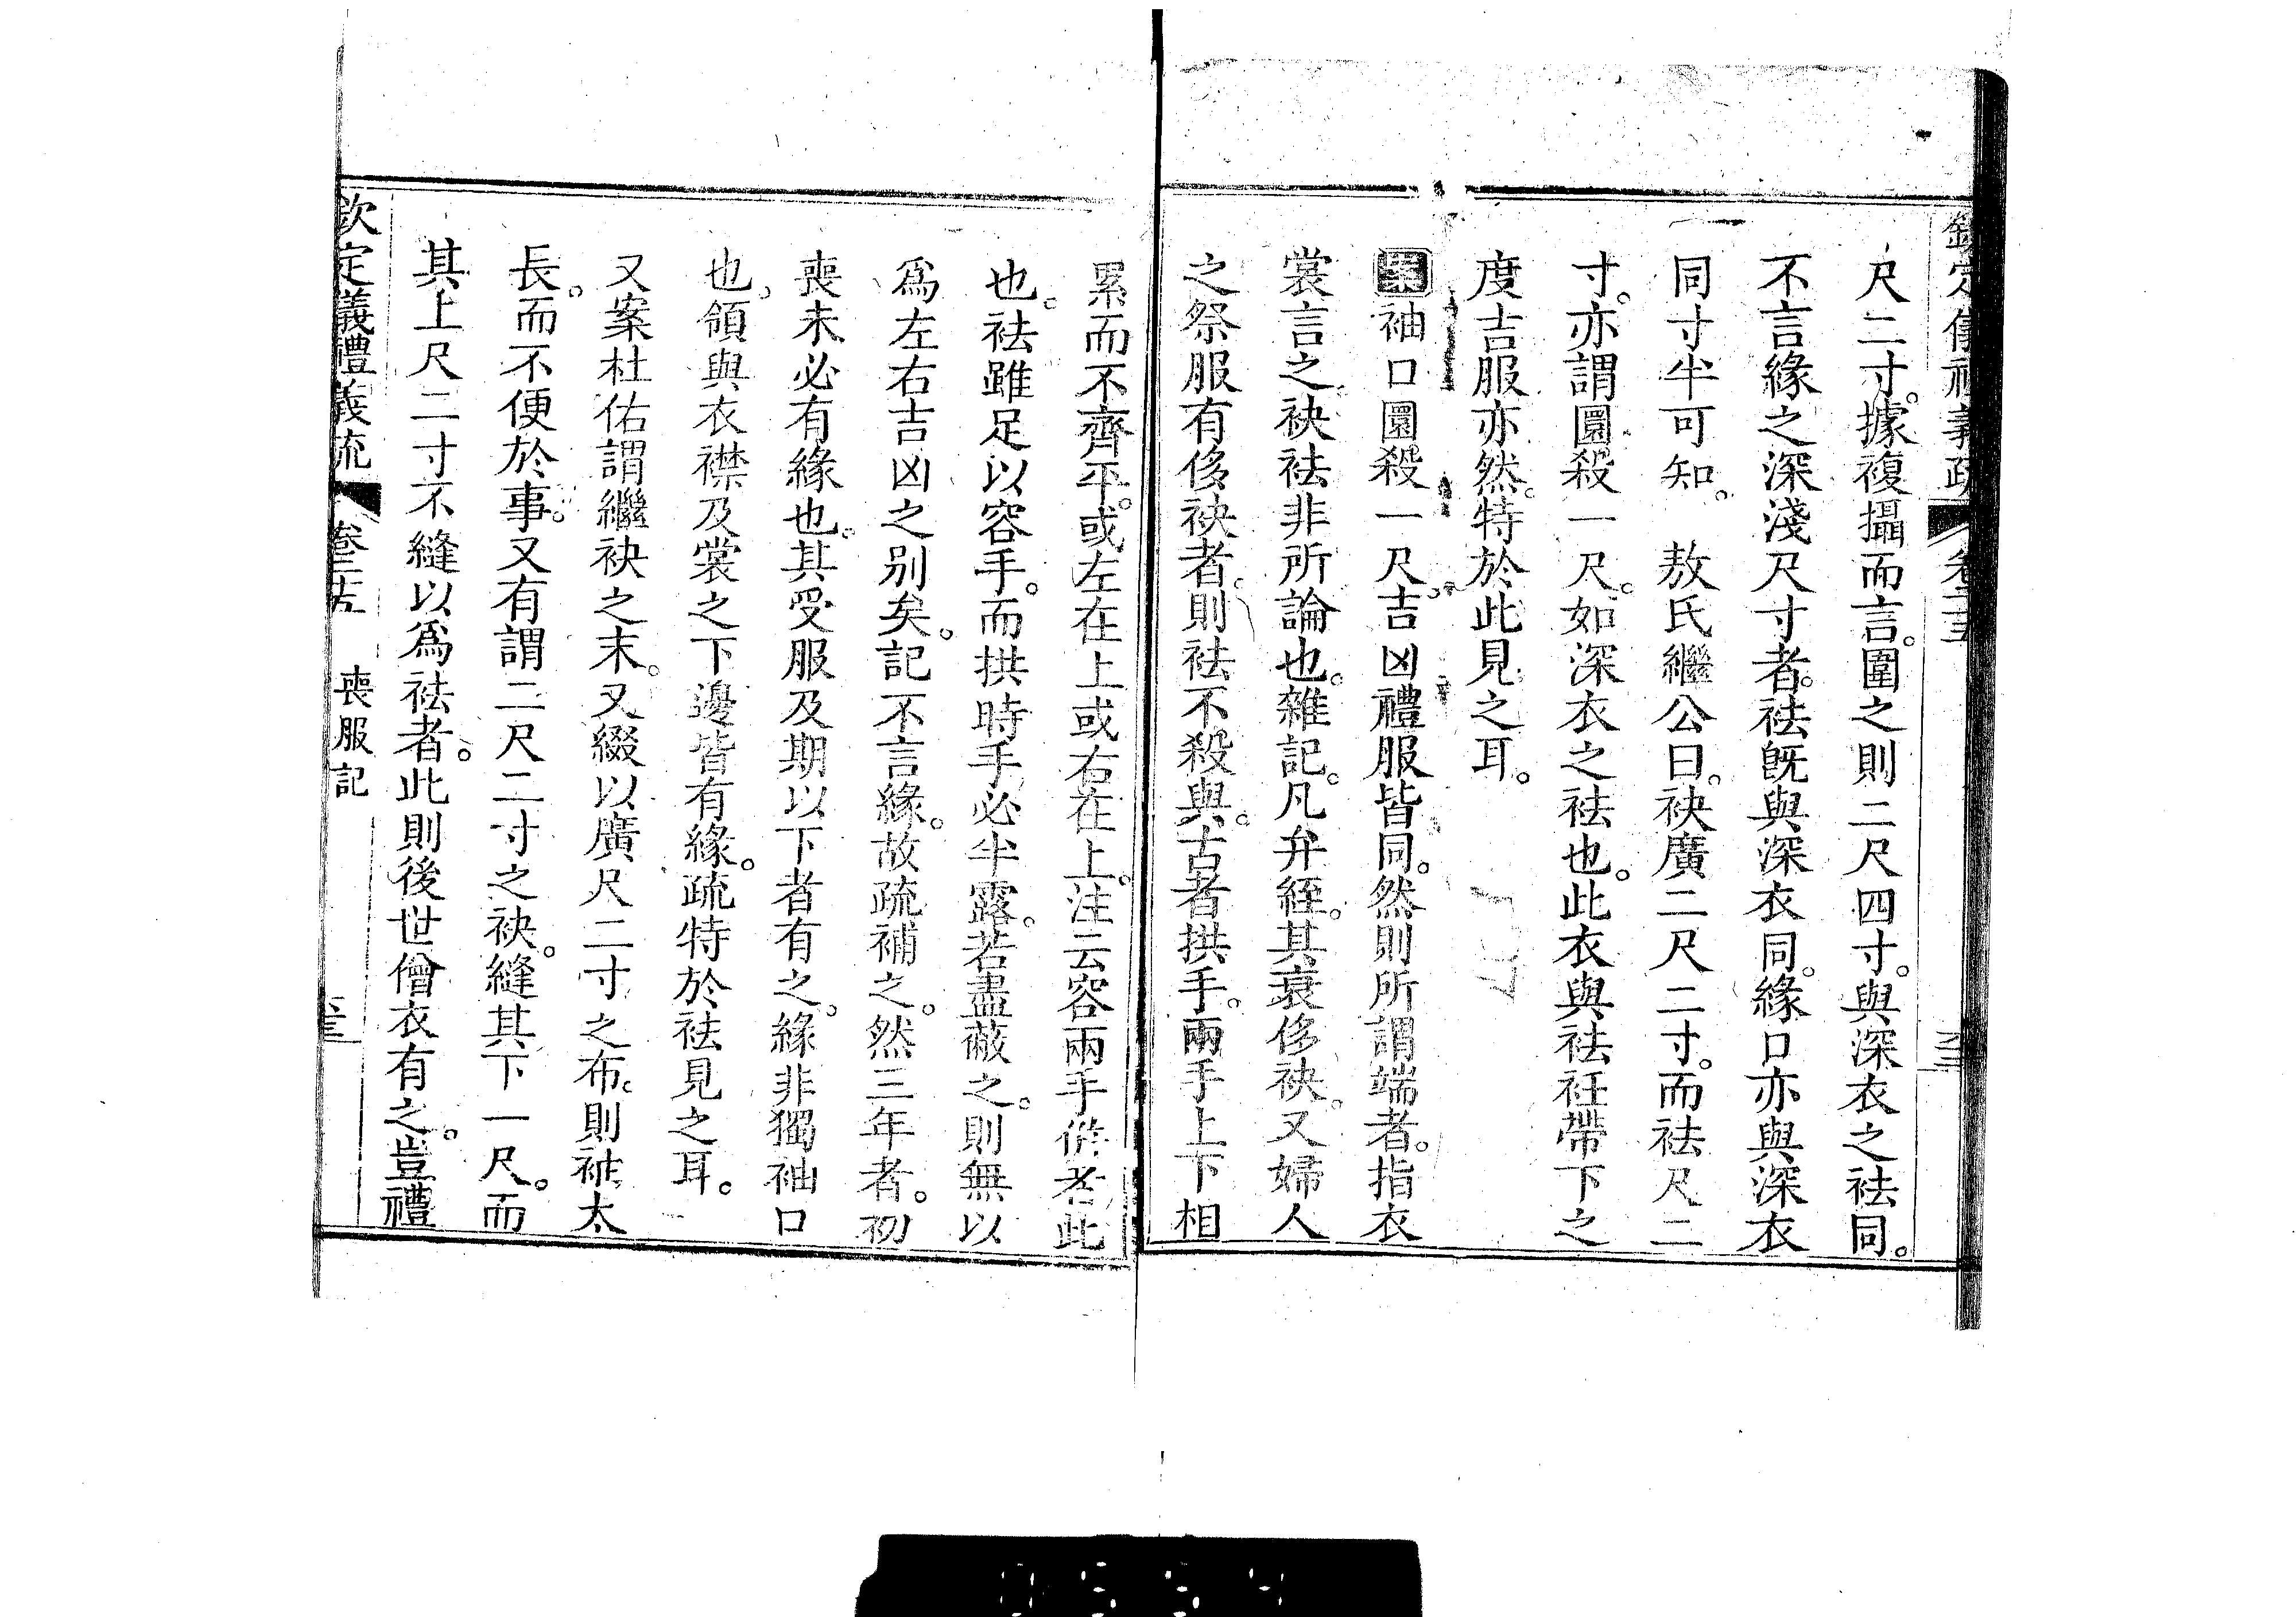 欽定儀禮義疏 卷二十五
尺二寸。據複攝而言。圍之則二尺四寸。與深衣之袪同。
不言緣之深淺尺寸者。袪旣與深衣同。緣口亦與深衣
同寸半可知。 敖氏繼公曰。袂廣二尺二寸。而袪尺二
寸。亦謂圜殺一尺。如深衣之袪也。此衣與袪衽帶下之
度吉服亦然。特於此見之耳。
案袖口圜殺一尺。吉凶禮服皆同。然則所謂端者。指衣
裳言之。袂袪非所論也。雜記。凡弁絰。其衰侈袂。又婦人
之祭服有侈袂者。則袪不殺與。古者拱手。兩手上下相
累而不齊平。或左在上或右在上。注云容兩手併者此
也。袪雖足以容手。而拱時手必半露。若盡蔽之。則無以
爲左右吉凶之别矣。記不言緣。故疏補之。然三年者。初
喪未必有緣也。其受服及期以下者有之。緣非獨袖口
也。領與衣襟及裳之下邊皆有緣。疏特於袪見之耳。
又案杜佑謂繼袂之末。又綴以廣尺二寸之布。則袖太
長。而不便於事。又有謂二尺二寸之袂。縫其下一尺。而
其上尺二寸不縫以爲袪者。此則後世僧衣有之。豈禮
欽定義禮義疏 卷二十五 喪服記